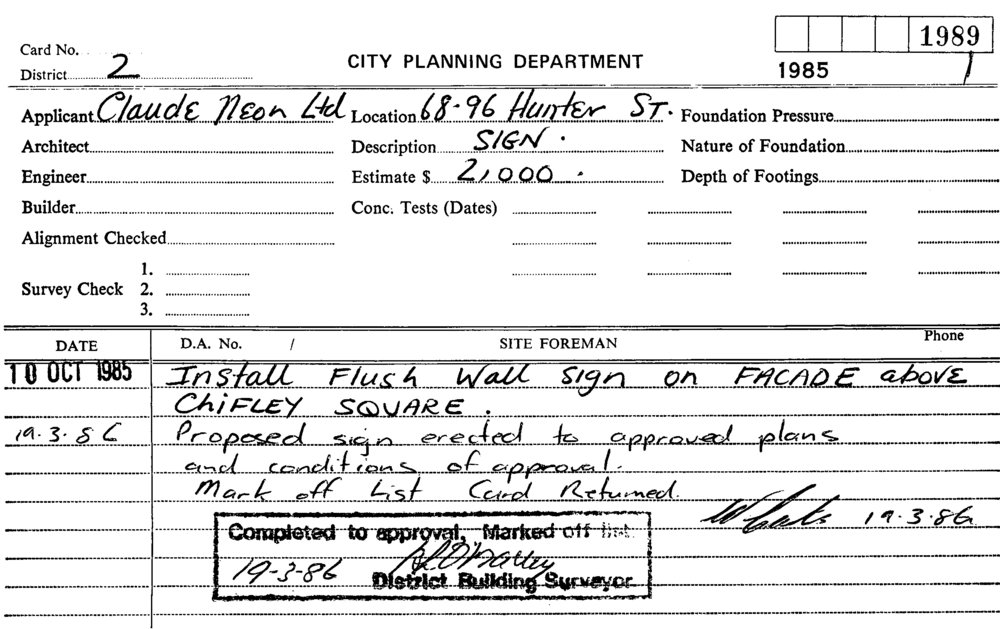 1989
Card No.
CITY PLANNING DEPARTMENT
1985 1
District 2
Applicant Claude Neon Ltd Location 68-96 Hunter ST. Foundation Pressure
Architect Description SIGN. Nature of Foundation
Engineer Estimate $ 2,000. Depth of Footings
Builder Conc. Tests (Dates)
Alignment Checked
1.
Survey Check 2.
3.
DATE D.A. No. / SITE FOREMAN Phone
10 OCT 1985 Install Flush Wall Sign on FACADE above
CHIFLEY SQUARE.
19.3.86 Proposed sign erected to approved plans
and conditions of approval.
Mark off List Card Returned.
19.3.86
Completed to approval, Marked off list
19-3-86
District Building Surveyor.